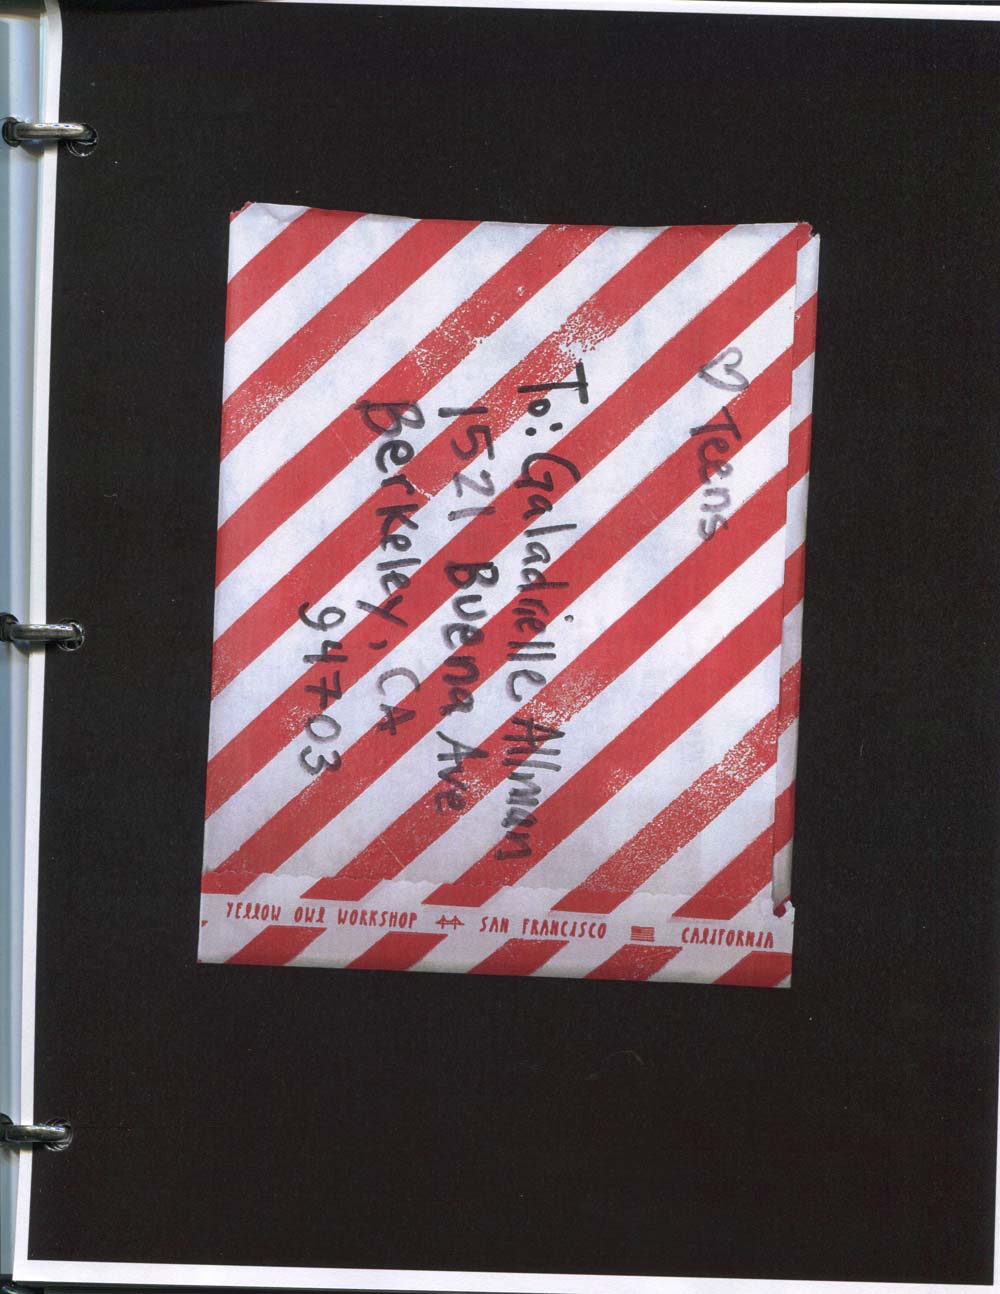 ♡ Teens
To: Galadrielle Allman
1521 Buena Ave
Berkeley, CA
94703
YELLOW OWL WORKSHOP SAN FRANCISCO CALIFORNIA